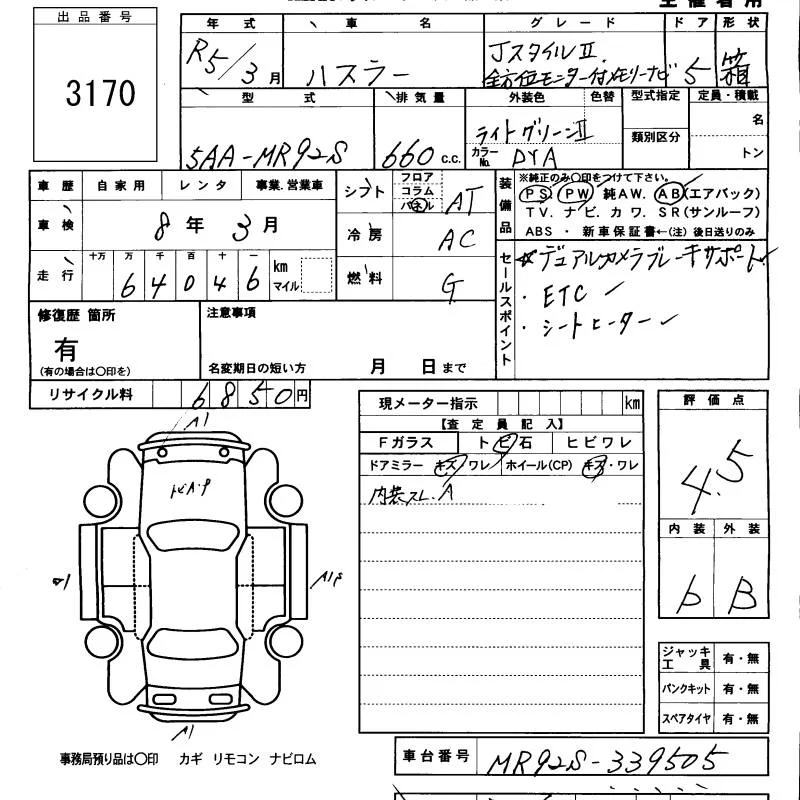 出品番号
3170
年式 車名 グレード ドア 形状
R5/3月 ハスラー JスタイルⅡ 5 箱
全方位モニター付メモリーナビ
型式 排気量 外装色 色替 型式指定 定員・積載
名
5AA-MR92S 660 c.c. ライトグリーンⅡ 類別区分
カラーNo. DYA トン
車歴 自家用 レンタ 事業.営業車
車検 8年 3月
走行 十万 万 千 百 十 一
6 4 0 4 6 km マイル
シフト フロア コラム パネル AT
冷房 AC
燃料 G
装備品 ※純正のみ〇印をつけて下さい。
PS PW 純AW. AB(エアバック)
TV. ナビ. カワ. SR(サンルーフ)
ABS ・ 新車保証書←(注) 後日送りのみ
セールスポイント
☆デュアルカメラブレーキサポート
・ETC
・シートヒーター
修復歴 箇所
有
(有の場合は〇印を)
注意事項
名変期日の短い方 月 日まで
リサイクル料 6850円
現メーター指示 km
【査定員記入】
Fガラス トビ石 ヒビワレ
ドアミラー キズ・ワレ ホイール(CP) キズ・ワレ
内装スレ.A
評価点
4.5
内装 外装
b B
A1
トビA・P
A1
A1P
A1
ジャッキ工具 有・無
パンクキット 有・無
スペアタイヤ 有・無
事務局預り品は〇印 カギ リモコン ナビロム
車台番号 MR92S-339505